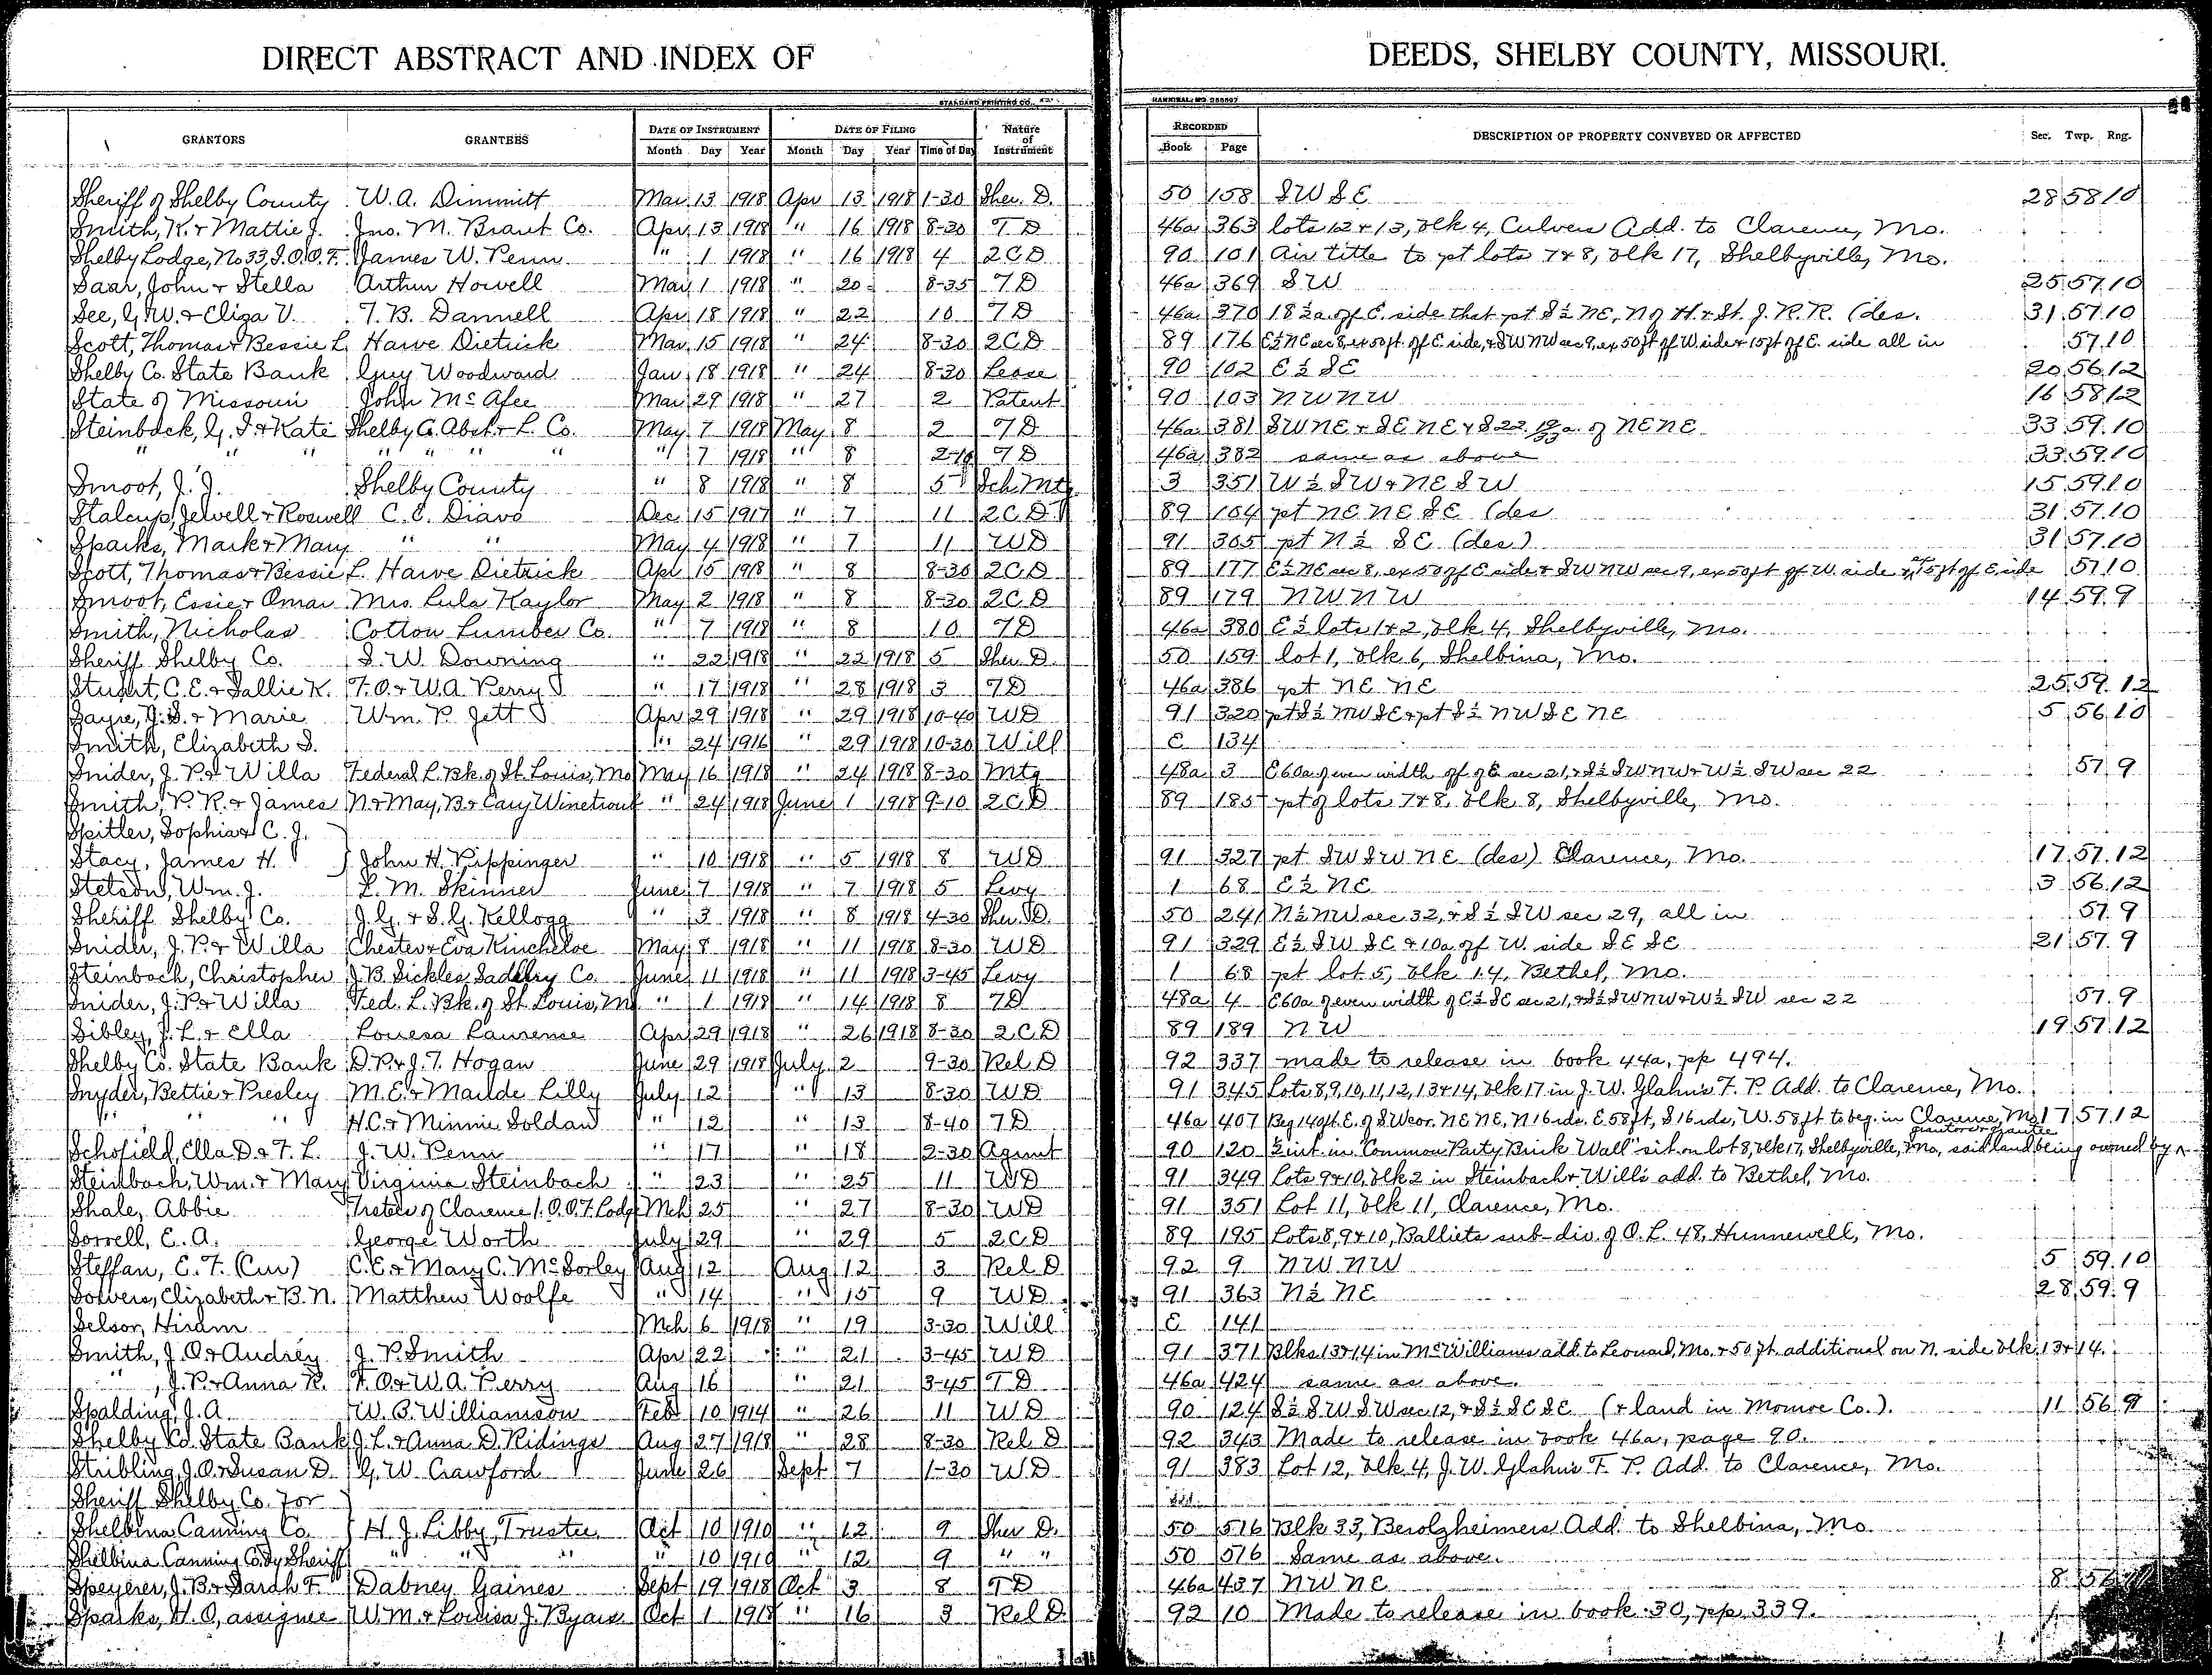 DIRECT ABSTRACT AND INDEX OF DEEDS, SHELBY COUNTY, MISSOURI.
STANDARD PRINTING CO. HANNIBAL, MO.
GRANTORS GRANTEES DATE OF INSTRUMENT Month Day Year DATE OF FILING Month Day Year Time of Day Nature of Instrument RECORDED Book Page DESCRIPTION OF PROPERTY CONVEYED OR AFFECTED Sec. Twp. Rng.
Sheriff of Shelby County W. A. Dimmitt Mar 13 1918 Apr 13 1918 1-30 Sher. D. 50 158 SW SE 28 58 10
Smith, K. & Mattie J. Jno. M. Brant Co. Apr 13 1918 " 16 1918 8-30 T D 46a 363 lots 12 & 13, blk 4, Culvers Add. to Clarence, Mo.
Shelby Lodge, No 33, I.O.O.F. James W. Penn " 1 1918 " 16 1918 4 2CD 90 101 Air title to pt lots 7 & 8, blk 17, Shelbyville, Mo.
Saar, John & Stella Arthur Howell Mar 1 1918 " 20 8-35 T D 46a 369 SW 25 57 10
See, G.W. & Eliza V. T. B. Dannell Apr 18 1918 " 22 10 T D 46a 370 18½a. off E. side that pt S½ NE, N of H. & St. J. R.R. (des. 31 57 10
Scott, Thomas & Bessie L. Harve Dietrick Mar 15 1918 " 24 8-30 2CD 89 176 E½ NE sec 8, ex 50 ft. off E side, & SW NW sec 9, ex 50 ft off W. side & 15 ft off E. side all in 57 10
Shelby Co. State Bank Guy Woodward Jan 18 1918 " 24 8-30 Lease 90 102 E½ SE 20 56 12
State of Missouri John McAfee Mar 29 1918 " 27 2 Patent 90 103 NW NW 16 58 12
Steinback, G. F. & Kate Shelby Co. Abst. & L. Co. May 7 1918 May 8 2 T D 46a 381 SW NE & SE NE & S 22 19/33 a. of NE NE 33 59 10
" " " " " " " " 7 1918 " 8 2-10 T D 46a 382 same as above 33 59 10
Smoot, J. J. Shelby County " 8 1918 " 8 5 Sch. Mtg 3 351 W½ SW & NE SW 15 59 10
Stalcup, Jewell & Roswell C. E. Diavo Dec 15 1917 " 7 11 2CD 89 164 pt NE NE SE (des 31 57 10
Sparks, Mark & Mary " " May 4 1918 " 7 11 WD 91 305 pt N½ SE (des.) 31 57 10
Scott, Thomas & Bessie L. Harve Dietrick Apr 15 1918 " 8 8-30 2CD 89 177 E½ NE sec 8, ex 50 off E side & SW NW sec 9, ex 50 ft off W. side & 15 ft off E. side 57 10
Smoot, Essie & Omar Mrs. Lula Kaylor May 2 1918 " 8 8-30 2CD 89 179 NW NW 14 59 9
Smith, Nicholas Cotton Lumber Co. " 7 1918 " 8 10 T D 46a 380 E½ lots 1 & 2, blk 4, Shelbyville, Mo.
Sheriff Shelby Co. S. W. Downing " 22 1918 " 22 1918 5 Sher. D. 50 159 lot 1, blk 6, Shelbina, Mo.
Stuart, C. E. & Sallie K. F. O. & W. A. Perry " 17 1918 " 28 1918 3 T D 46a 386 pt NE NE 25 59 12
Sayre, J. S. & Marie Wm. P. Jett Apr 29 1918 " 29 1918 10-40 WD 91 320 pt S½ NW SE & pt S½ NW SE NE 5 56 10
Smith, Elizabeth S. " 24 1916 " 29 1918 10-30 Will E 134
Snider, J. P. & Willa Federal L. Bk. of St. Louis, Mo May 16 1918 " 24 1918 8-30 Mtg 48a 3 E 60a of even width off of E sec 21, & S½ SW NW & W½ SW sec 22 57 9
Smith, P. R. & James N. & May, B. & Cary Winetrout " 24 1918 June 1 1918 9-10 2CD 89 185 pt of lots 7 & 8, blk 8, Shelbyville, Mo.
Spitler, Sophia & C. J. }
Stacy, James H. } John H. Pippinger " 10 1918 " 5 1918 8 WD 91 327 pt SW SW NE (des) Clarence, Mo. 17 57 12
Stetson, Wm. J. L. M. Skinner June 7 1918 " 7 1918 5 Levy 1 68 E½ NE 3 56 12
Sheriff Shelby Co. J. G. & S. G. Kellogg " 3 1918 " 8 1918 4-30 Sher. D. 50 241 N½ NW sec 32, & S½ SW sec 29, all in 57 9
Snider, J. P. & Willa Chester & Eva Kincheloe May 8 1918 " 11 1918 8-30 WD 91 329 E½ SW SE & 10a off W. side SE SE 21 57 9
Steinbach, Christopher J. B. Sickles Saddlry Co. June 11 1918 " 11 1918 3-45 Levy 1 68 pt lot 5, blk 14, Bethel, Mo.
Snider, J. P. & Willa Fed. L. Bk. of St. Louis, M " 1 1918 " 14 1918 8 T D 48a 4 E 60a of even width of E½ SE sec 21, & S½ SW NW & W½ SW sec 22 57 9
Sibley, J. L. & Ella Louesa Lawrense Apr 29 1918 " 26 1918 8-30 2CD 89 189 NW 19 57 12
Shelby Co. State Bank D. P. & J. T. Hogan June 29 1918 July 2 9-30 Rel D 92 337 made to release in book 44a, pp 494.
Snyder, Bettie & Presley M. E. & Maude Lilly July 12 " 13 8-30 WD 91 345 Lots 8, 9, 10, 11, 12, 13 & 14, blk 17 in J. W. Glahn's F. P. Add. to Clarence, Mo.
" " " H. C. & Minnie Soldan " 12 " 13 8-40 T D 46a 407 Beg 140 ft. E. of SW cor. NE NE, N 16 rds. E. 58 ft, S 16 rds, W. 58 ft to beg. in Clarence, Mo 17 57 12
Schofield, Ella D. & F. L. J. W. Penn " 17 " 18 2-30 Agmt 90 120 ½ int. in "Common Party Brick Wall" sit. on lot 8, blk 17, Shelbyville, Mo., said land being owned by grantor & grantee
Steinbach, Wm. & Mary Virginia Steinbach " 23 " 25 11 WD 91 349 Lots 9 & 10, blk 2 in Steinbach & Will's add. to Bethel, Mo.
Shale, Abbie Trstees of Clarence I.O.O.F. Lodge Mch 25 " 27 8-30 WD 91 351 Lot 11, blk 11, Clarence, Mo.
Sorrell, E. A. George Worth July 29 " 29 5 2CD 89 195 Lots 8, 9 & 10, Balliets sub-div. of O. L. 48, Hunnewell, Mo.
Steffan, E. F. (Cur) C. E. & Mary C. McSorley Aug 12 Aug 12 3 Rel D 92 9 NW NW 5 59 10
Solvers, Elizabeth & B. N. Matthew Woolfe " 14 " 15 9 WD 91 363 N½ NE 28 59 9
Selsor, Hiram Mch 6 1918 " 19 3-30 Will E 141
Smith, J. O. & Audrey J. P. Smith Apr 22 " 21 3-45 WD 91 371 Blks 13 & 14 in McWilliams add to Leonard, Mo. & 50 ft. additional on N. side blk 13 & 14.
" , J. P. & Anna R. F. O. & W. A. Perry Aug 16 " 21 3-45 T D 46a 424 same as above.
Spalding, J. A. W. B. Williamson Feb 10 1914 " 26 11 WD 90 124 S½ SW SW sec 12, & S½ SE SE (& land in Monroe Co.). 11 56 9
Shelby Co. State Bank J. L. & Anna D. Ridings Aug 27 1918 " 28 8-30 Rel D 92 343 Made to release in book 46a, page 90.
Stribling, J. O. & Susan D. G. W. Crawford June 26 Sept 7 1-30 WD 91 383 Lot 12, blk 4, J. W. Glahn's F. P. Add. to Clarence, Mo.
Sheriff Shelby Co. for }
Shelbina Canning Co. } H. J. Libby, Trustee Oct 10 1910 " 12 9 Sher D. 50 516 Blk 33, Berolzheimers Add. to Shelbina, Mo
Shelbina Canning Co. by Sheriff " " " " 10 1910 " 12 9 " " 50 576 Same as above.
Speyerer, J. B. & Sarah F. Dabney Gaines Sept 19 1918 Oct 3 8 T D 46a 437 NW NE 8 56
Sparks, H. O., assignee W. M. & Louisa J. Byars Oct 1 1918 " 16 3 Rel D 92 10 Made to release in book 30, pp. 339.